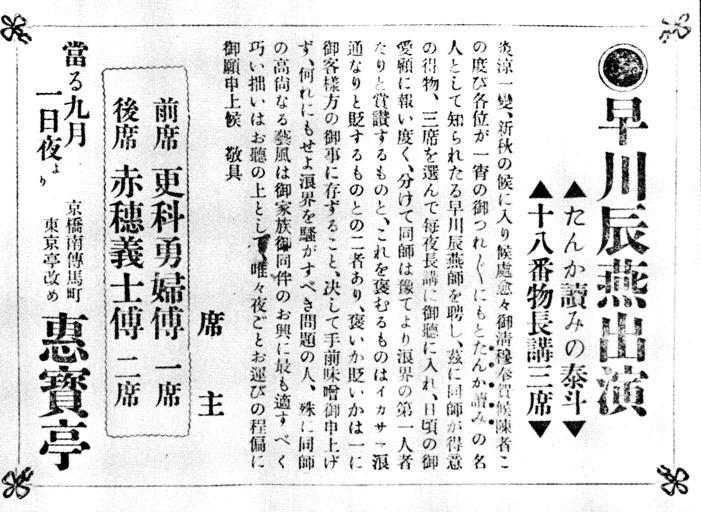 早川辰燕出演
▲たんか讀みの泰斗▼
▲十八番物長講三席▼
炎涼一變、新秋の候に入り候處愈々御淸穆奉賀候陳者こ
の度び各位が一宵の御つれ〲にもとたんか讀みの名
人として知られたる早川辰燕師を聘し、茲に同師が得意
の得物、三席を選んで每夜長講に御聽に入れ、日頃の御
愛顧に報い度く、分けて同師は豫てより浪界の第一人者
なりと賞讃するものと、これを褒むるものはイカサマ浪
通なりと貶するものとの二者あり、褒いか貶いかは一に
御客樣方の御事に存ずること、決して手前味噌御申上げ
ず、何れにもせよ浪界を騷がすべき問題の人、殊に同師
の高尙なる藝風は御家族御同伴のお興に最も適すべく
巧い拙いはお聽の上とし、唯々夜ごとお運びの程偏に
御願申上候　敬具
席主
前席　更科勇婦傳　一席
後席　赤穗義士傳　二席
當る九月
一日夜より
京橋南傳馬町
東京亭改め
惠寶亭